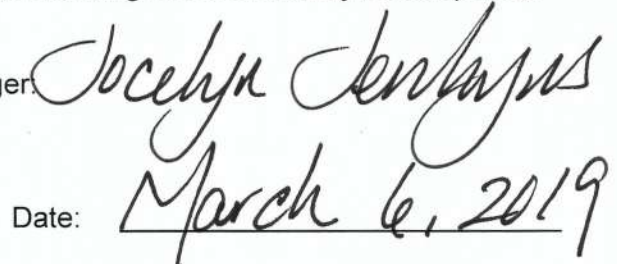 ger: Jocelyn Jenkyns
Date: March 6, 2019